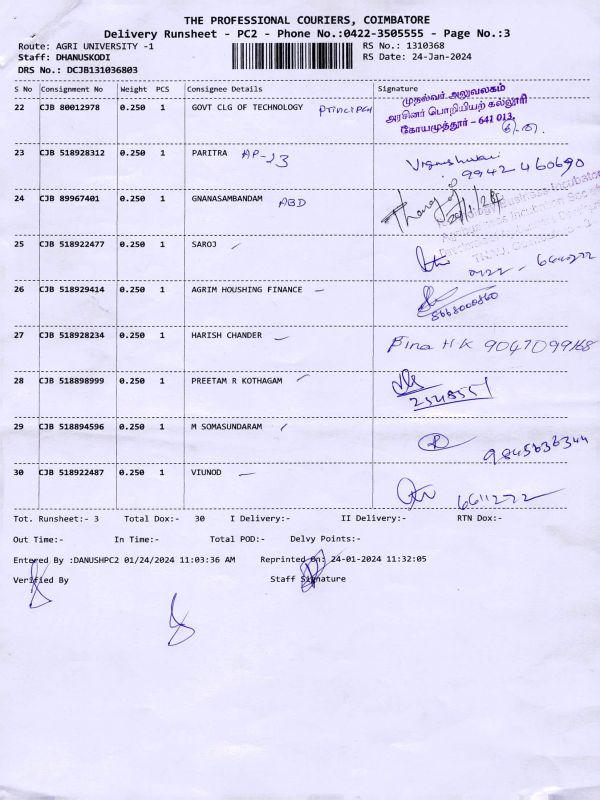 THE PROFESSIONAL COURIERS, COIMBATORE
Delivery Runsheet - PC2 - Phone No.:0422-3505555 - Page No.:3
Route: AGRI UNIVERSITY -1 RS No.: 1310368
Staff: DHANUSKODI RS Date: 24-Jan-2024
DRS No.: DCJB131036803
S No Consignment No Weight PCS Consignee Details Signature
22 CJB 80012978 0.250 1 GOVT CLG OF TECHNOLOGY Principal
முதல்வர் அலுவலகம்
அரசினர் பொறியியற் கல்லூரி
கோயமுத்தூர் - 641 013.
23 CJB 518928312 0.250 1 PARITRA AP-13 Vigneshwari
9942460690
24 CJB 89967401 0.250 1 GNANASAMBANDAM ABD
24/1/24
Business Incubator
25 CJB 518922477 0.250 1 SAROJ
0422 - 6611272
26 CJB 518929414 0.250 1 AGRIM HOUSHING FINANCE
8668000860
27 CJB 518928234 0.250 1 HARISH CHANDER Bina H K 9047099168
28 CJB 518898999 0.250 1 PREETAM R KOTHAGAM
2548551
29 CJB 518894596 0.250 1 M SOMASUNDARAM
9845636344
30 CJB 518922487 0.250 1 VIUNOD
6611272
Tot. Runsheet:- 3 Total Dox:- 30 I Delivery:- II Delivery:- RTN Dox:-
Out Time:- In Time:- Total POD:- Delvy Points:-
Entered By :DANUSHPC2 01/24/2024 11:03:36 AM Reprinted On: 24-01-2024 11:32:05
Verified By Staff Signature